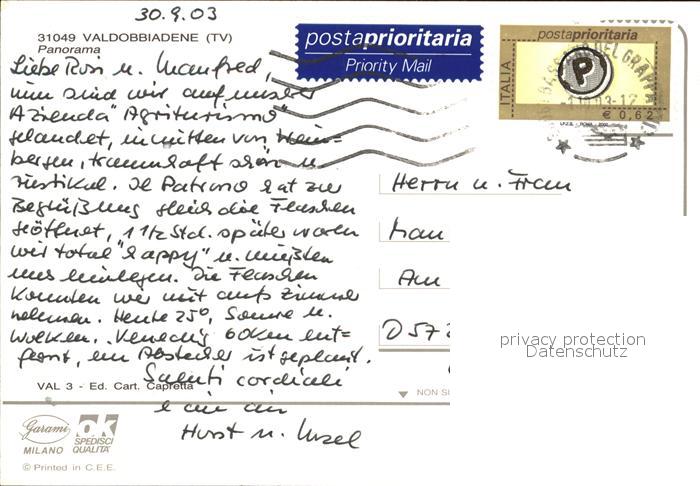 30.9.03
31049 VALDOBBIADENE (TV)
Panorama
postaprioritaria
Priority Mail
postaprioritaria
ITALIA
P
€ 0,62
I.P.Z.S. - ROMA - 2002
Liebe Rosi u. Manfred,
nun sind wir auf unserer
Azienda "Agriturismo"
gelandet, inmitten von Wein=
bergen, traumhaft schön u.
rustikal. Il Patrono hat zur
Begrüßung gleich die Flaschen
geöffnet, 1 1/2 Std. später waren
wir total "happy" u. mußten
uns hinlegen. Die Flaschen
konnten wir mit aufs Zimmer
nehmen. Heute 25°, Sonne u.
Wolken. Venedig 60km ent=
fernt, ein Abstecher ist geplant.
Saluti cordiali
e
Horst u. Ursel
Herrn u. Frau
Am
D 572
privacy protection
Datenschutz
VAL 3 - Ed. Cart. Capretta
NON
Garami
MILANO
ok
SPEDISCI
QUALITA'
© Printed in C.E.E.